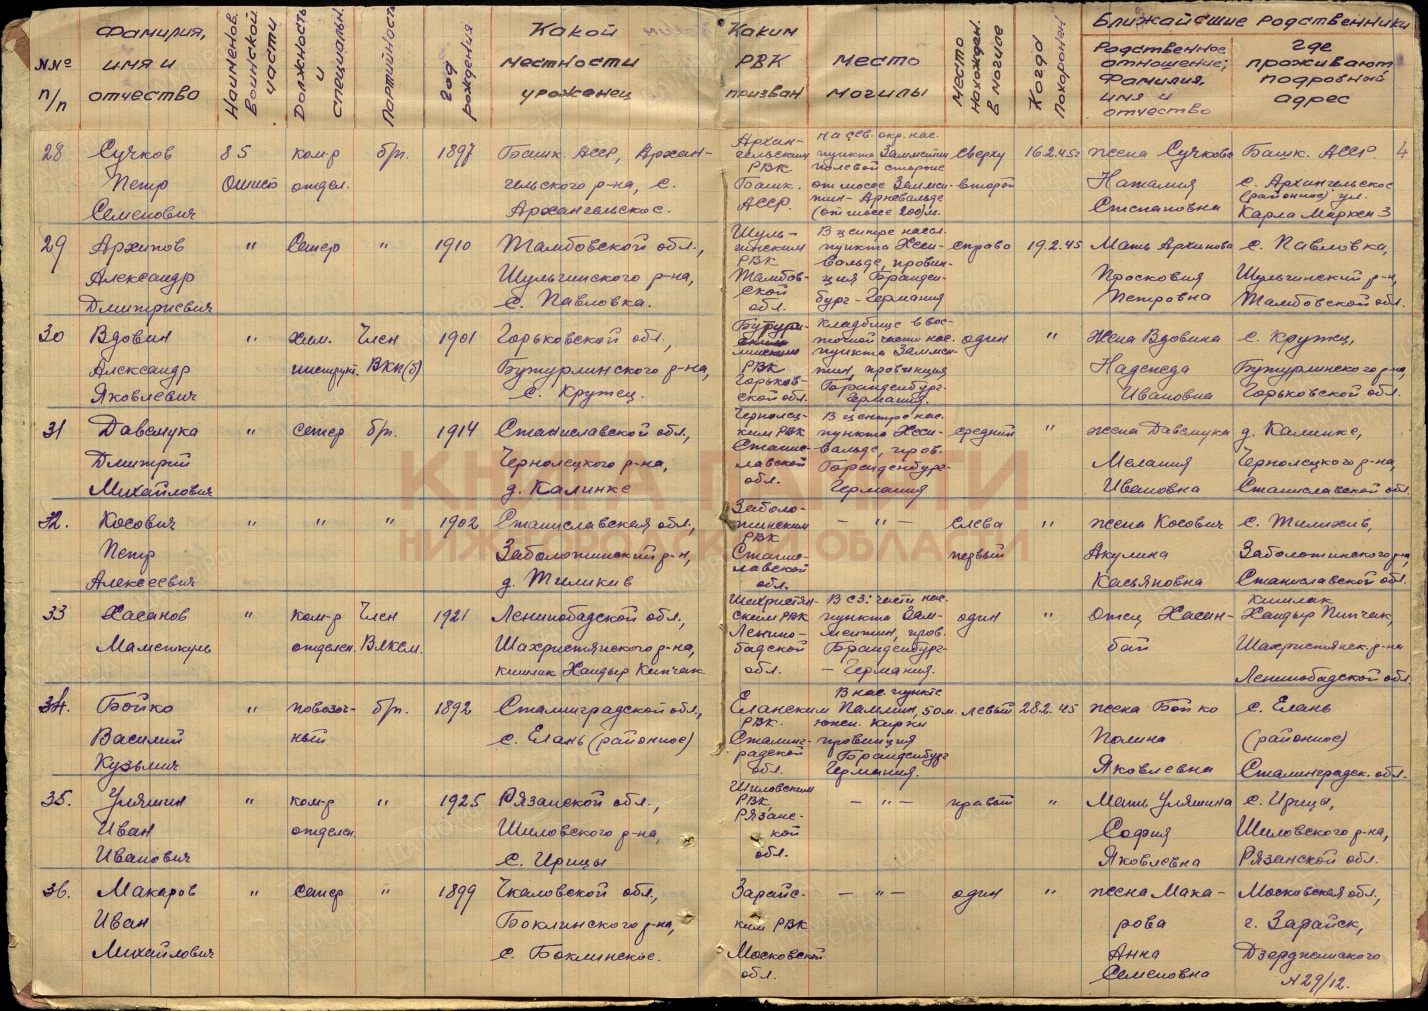 №№ п/п
Фамилия, имя и отчество
Наименов. воинской части
Должность и специальн.
Партийность
Год рождения
Какой местности уроженец
Каким РВК призван
Место могилы
Место нахожден. в могиле
Когда похоронен
Ближайшие родственники
Родственное отношение; фамилия, имя и отчество
Где проживают подробный адрес
4
28 Сучков 85 ком-р б/п. 1897 Башк. АССР, Архан- Архан- на сев. окр. нас. сверху 16.2.45г жена Сучкова Башк. АССР
Петр Ошисб отдел. гельского р-на, с. гельским РВК пункта Заммтин второй Наталия с. Архангельское
Семенович Архангельское. Башк. АССР. полевой стороне от шоссе Заммтин-Арневальде (от шоссе 200 м. Степановна (районное) ул. Карла Маркса 3
29 Архипов " Сапер " 1910 Тамбовской обл., Шуль- В центре насел. справо 19.2.45 Мать Архипова с. Павловка,
Александр Шульгинского р-на, гинским РВК пункта Хеси- Просковия Шульгинский р-н,
Дмитриевич с. Павловка. Тамбовской обл. вальде, провинция Бранденбург-Германия Петровна Тамбовской обл.
30 Вдовин " хим. Член 1901 Горьковской обл., Бутурлинским кладбище в вос- один " Жена Вдовина с. Кружец,
Александр инструкт. ВКП(б) Бутурлинского р-на, РВК точной части нас. пункта Заммтин, провинция Надежда Бутурлинского р-на,
Яковлевич с. Кружец. Горьковской обл. Бранденбург-Германия. Ивановна Горьковской обл.
31 Давемука " сапер б/п. 1914 Станиславской обл., Чернолец- В центре нас. средний " жена Давемука д. Калинке,
Дмитрий Чернолецкого р-на, ким РВК пункта Хеси- Мелания Чернолецкого р-на,
Михайлович д. Калинке Станиславской обл. вальде, пров. Бранденбург-Германия Ивановна Станиславской обл.
32. Косович " " " 1902 Станиславская обл., Заболо- — " — слева " жена Косович с. Тилихив,
Петр Заболотинский р-н, тинским РВК первый Акулина Заболотинского р-на,
Алексеевич д. Тиликив Станиславской обл. Касьяновна Станиславской обл.
33 Хасанов " ком-р Член 1921 Ленинобадской обл., Шахристян- В сз. части нас. один " отец Хасан- кишлак Хандыр Кипчак,
Маметкуль отделен. ВЛКСМ. Шахристянского р-на, ским РВК пункта Зам- бай Шахристянск. р-на
кишлак Хандыр Кипчак Ленинобадской обл. ментин, пров. Бранденбург-Германия. Ленинобадской обл.
34. Бойко " повозоч- б/п. 1892 Сталинградской обл., Еланским В нас. пункте Паммин, 50 м. левый 28.2.45 жена Бойко с. Елань
Василий ный с. Елань (районное) РВК. южн. кирхи Полина (районное)
Кузьмич Сталинградской обл. провинция Бранденбург Германия. Яковлевна Сталинградск. обл.
35. Уляшин " ком-р " 1925 Рязанской обл., Шиловским — " — правый " Мать Уляшина с. Ирицы,
Иван отделен. Шиловского р-на, РВК, Рязанс- София Шиловского р-на,
Иванович с. Ирицы кой обл. Яковлевна Рязанской обл.
36. Макаров " сапер " 1899 Чкаловской обл., Зарайс- — " — один " жена Мака- Московская обл.,
Иван Боклинского р-на, ким РВК рова г. Зарайск,
Михайлович с. Боклинское. Московской обл. Анна Семеновна Дзержинского
N 29/12.
КНИГА ПАМЯТИ
НИЖЕГОРОДСКОЙ ОБЛАСТИ